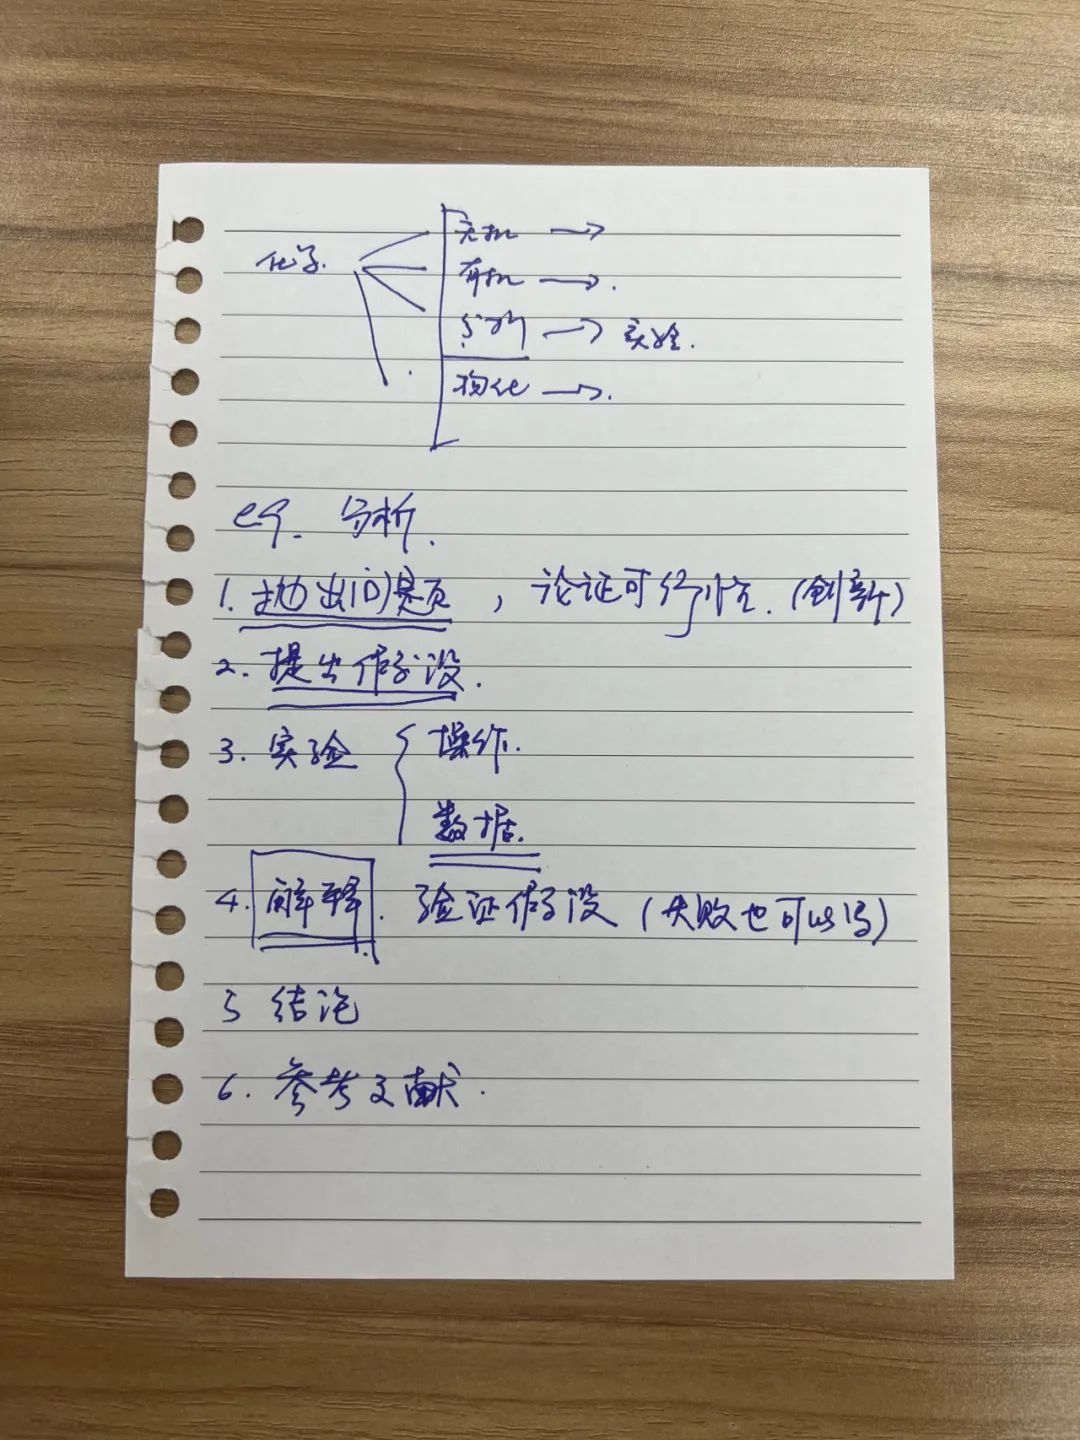 化学
无机 →
有机 →
分析 → 实验.
物化 →
eg. 分析.
1. 抛出问题, 论证可行性. (创新)
2. 提出假设.
3. 实验 { 操作.
数据.
4. 解释. 验证假设 (失败也可以写)
5 结论
6. 参考文献.